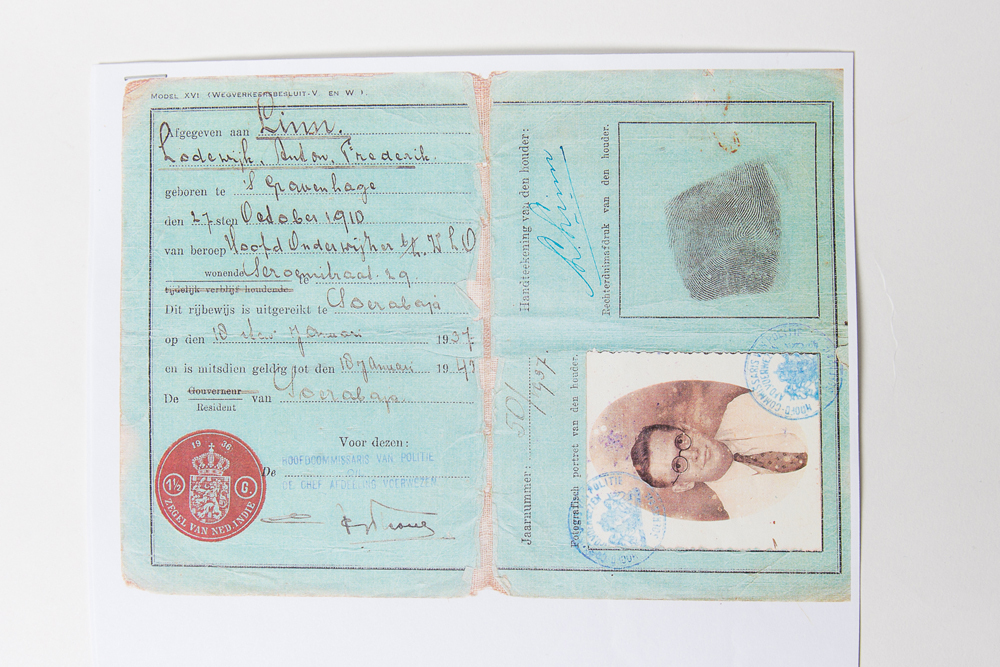 MODEL XVI (WEGVERKEERSBESLUIT-V. EN W.).
Afgegeven aan Linn.
Lodewijk, Anton, Frederik.
geboren te 's Gravenhage
den 27sten October 1910
van beroep Hoofd Onderwijzer
wonende te
tijdelijk verblijf houdende
Dit rijbewijs is uitgereikt te Soerabaja
op den 18 Januari 1937.
en is mitsdien geldig tot den 18 Januari 1942
De Gouverneur van Soerabaja.
Resident
Voor dezen:
HOOFDCOMMISSARIS VAN POLITIE
De
DE CHEF AFDEELING VERKEERSWEZEN
1936
1½ G.
ZEGEL VAN NED. INDIE
Handteekening van den houder:
L. Linn
Rechterduimafdruk van den houder.
Jaarnummer: 501/1937.
Fotografisch portret van den houder.
HOOFD-COMMISSARIS
POLITIE